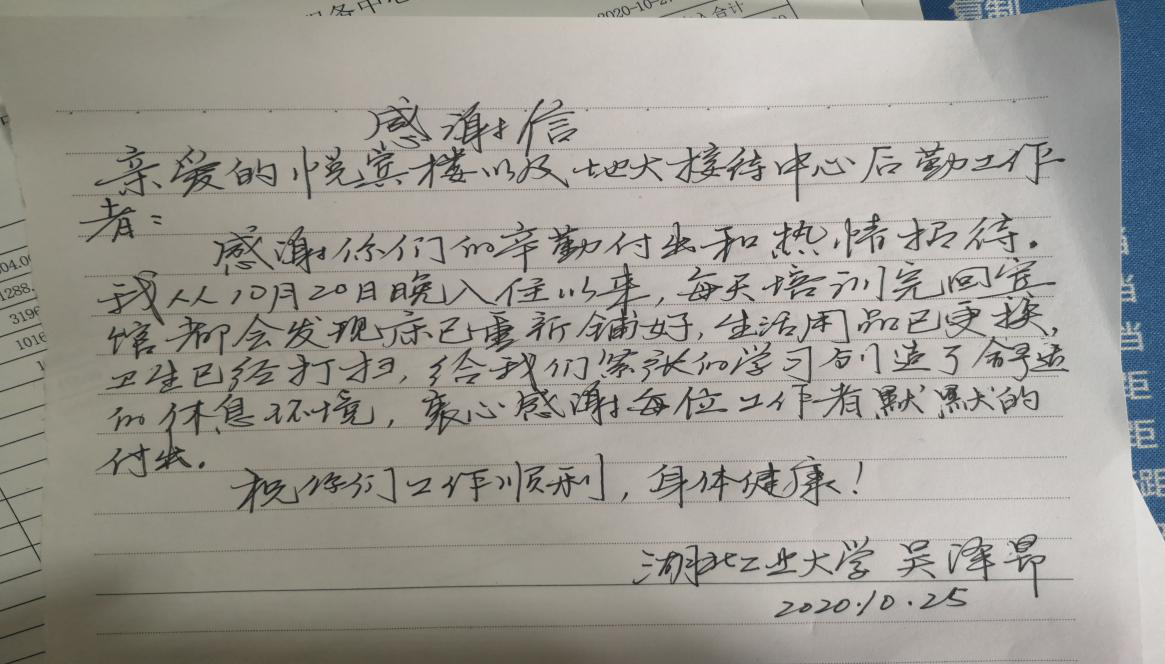 2020-10-2
入合计
复制
感谢信
亲爱的悦宾楼以及地大接待中心后勤工作
者：
感谢你们的辛勤付出和热情招待。
我从10月20日晚入住以来，每天培训完回宾
馆都会发现床已重新铺好，生活用品已更换，
卫生已经打扫，给我们紧张的学习创造了舒适
的休息环境，衷心感谢每位工作者默默的
付出。
祝你们工作顺利，身体健康！
湖北工业大学 吴泽昂
2020.10.25
04.0
1288.
3196
1016
当
距
距
距